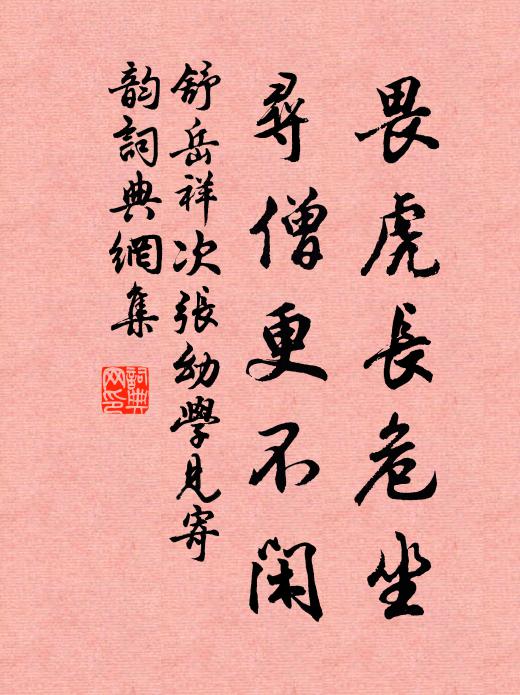 畏虎長危坐
尋僧更不閑
舒岳祥次張幼學見寄
韵詞典網集
詞典網印